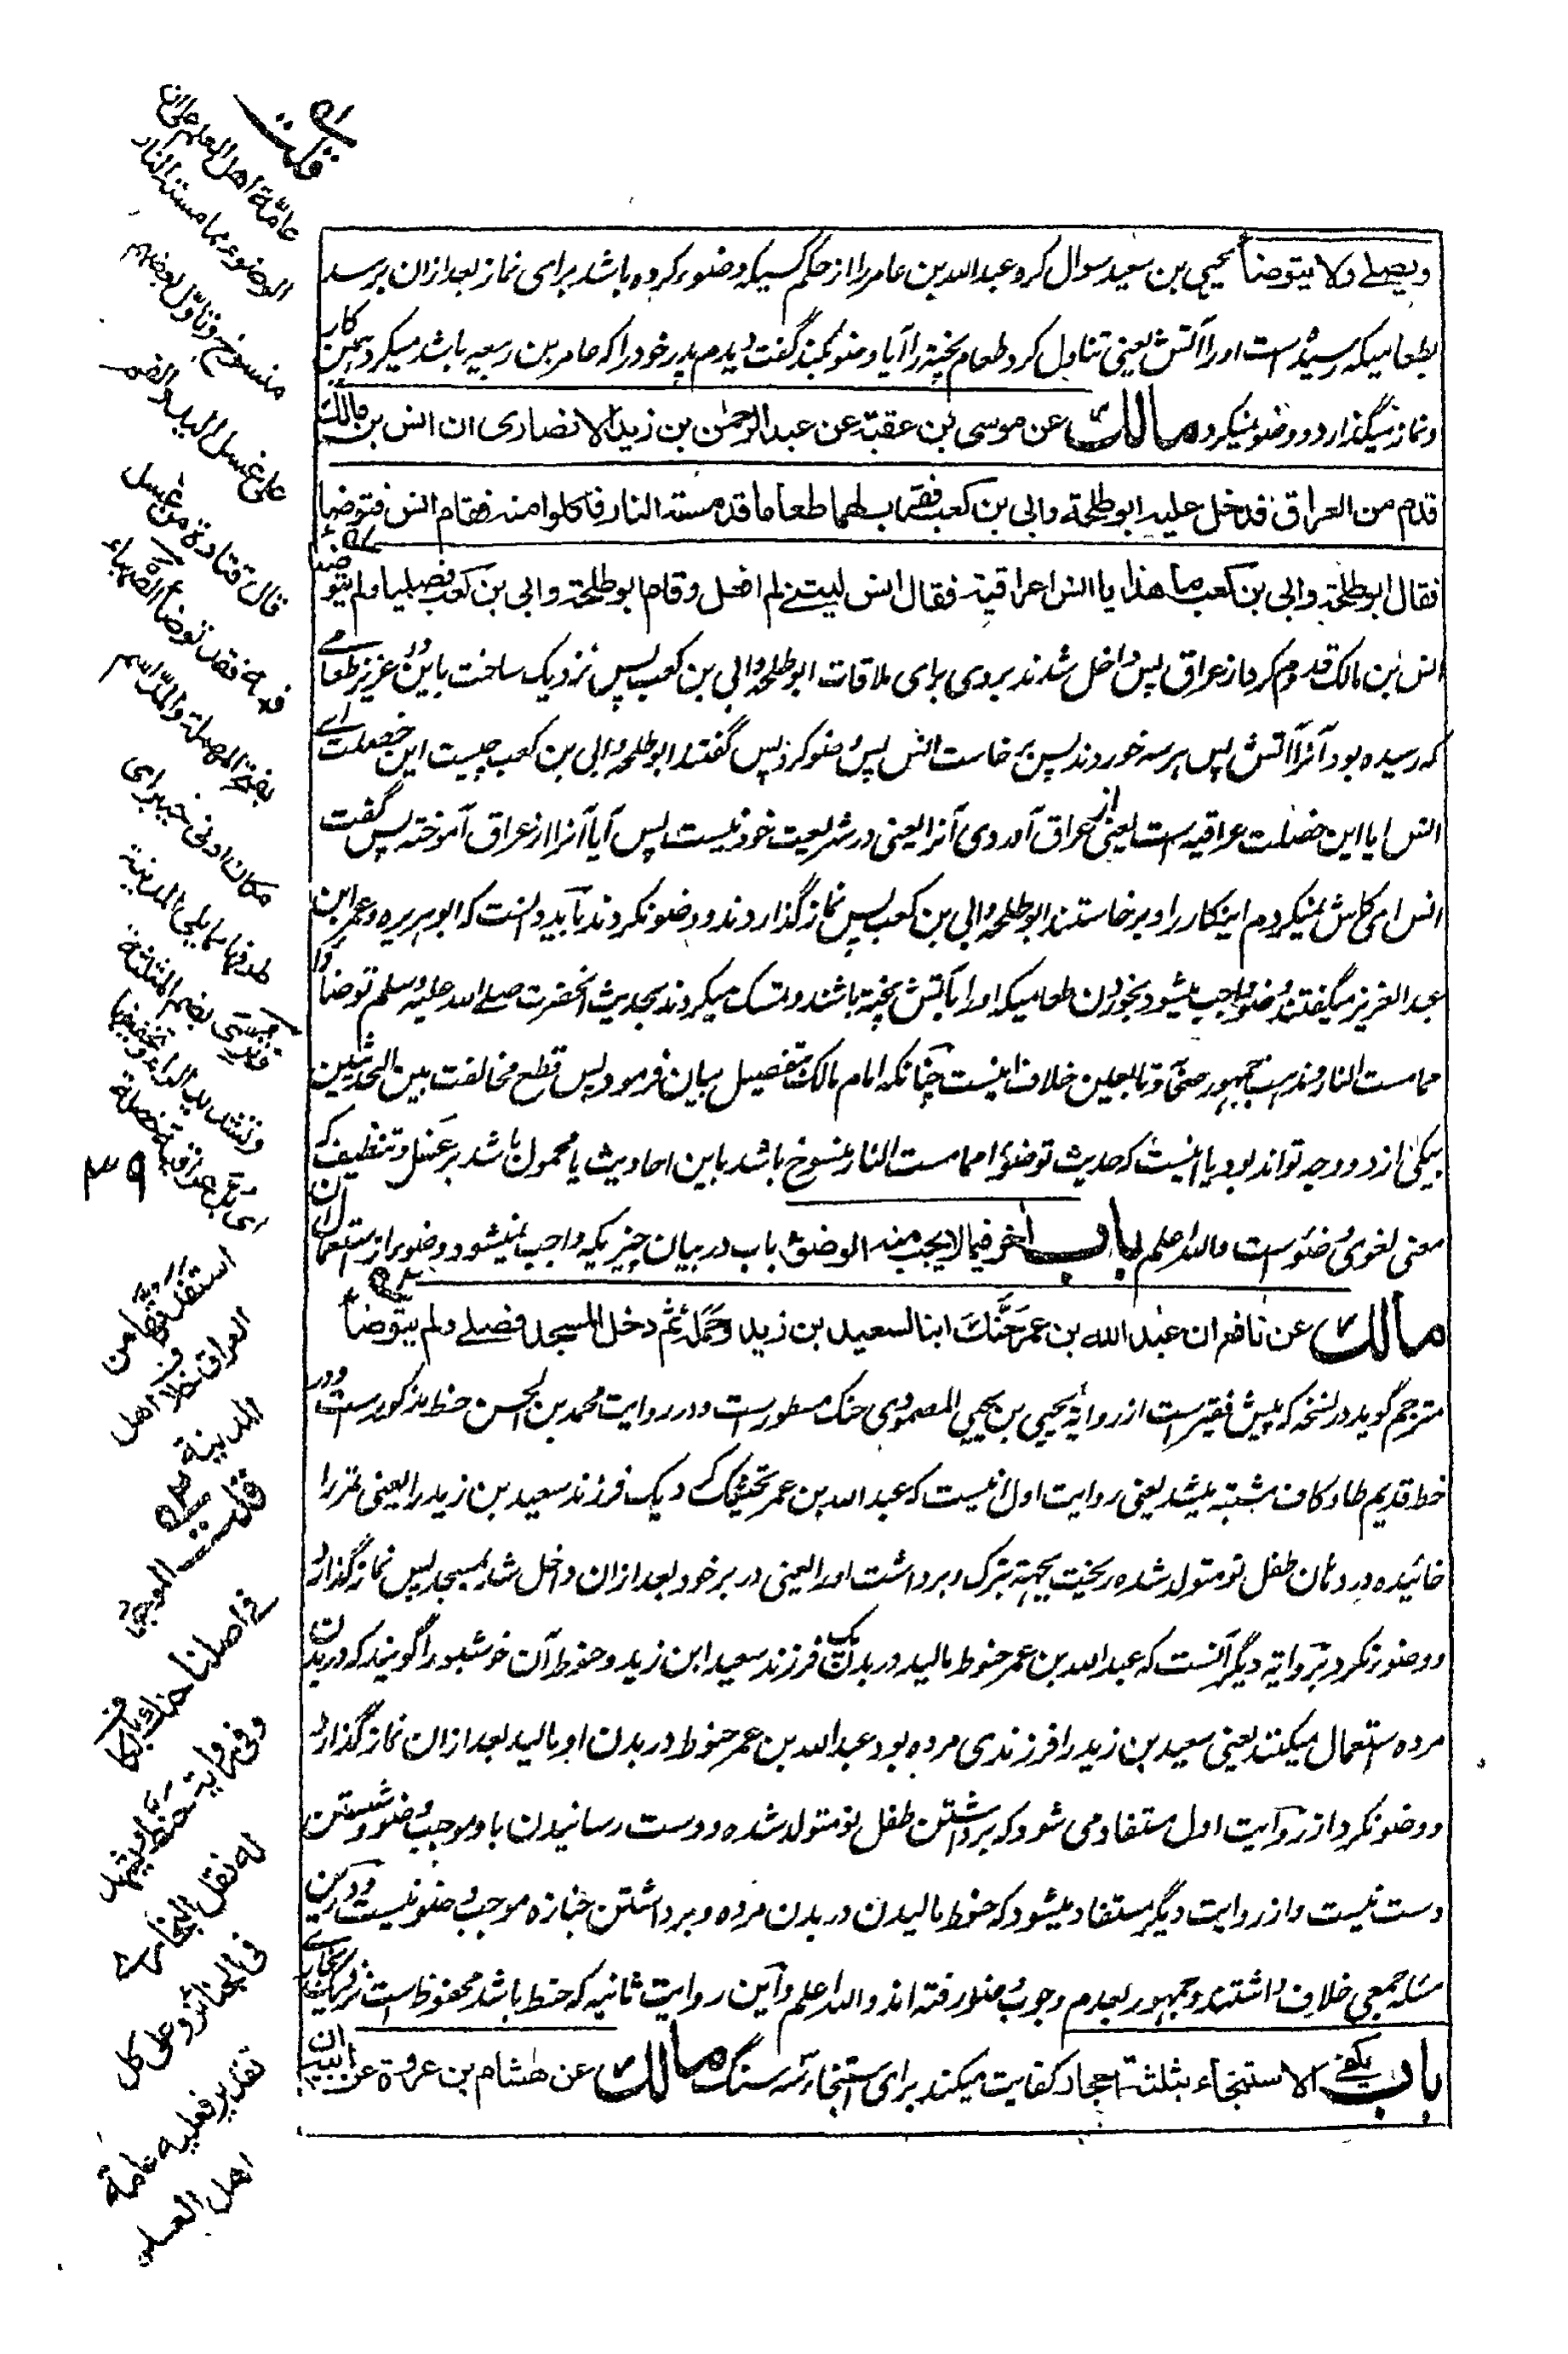 ویصلی ولا یتوضأ یحیی بن سعید سوال کرد عبد الله بن عامر را از حکم کسیکه وضوء کرده باشد برای نماز بعد ازان برسد
بطعامیکه رسیده است اورا آتش یعنی تناول کرد طعام پخته را آیا وضو بکند گفت دیدم پدر خود را که عامر بن ربیعه باشد میکرد همین کار
ونماز میگذارد ووضو نمیکرد مالك عن موسی بن عقبة عن عبد الرحمٰن بن زید الانصاری ان انس بن مالك
قدم من العراق فدخل علیه ابو طلحة وابی بن کعب فقرب لهما طعاما قد مسته النار فاکلوا منه فقام انس فتوضأ
فقال ابو طلحة وابی بن کعب ما هذا یا انس اعراقیة فقال انس لیتنی لم افعل وقام ابو طلحة وابی بن کعب فصلیا ولم یتوضئا
انس بن مالک قدوم کرد از عراق پس داخل شدند بر وی برای ملاقات ابو طلحه وابی بن کعب پس نزدیک ساخت باین دو عزیز طعامے
که رسیده بود آنرا آتش پس هر سه خوردند پس برخاست انس پس وضو کرد پس گفتند ابو طلحه وابی بن کعب چیست این خصلت اے
انس ایا این خصلت عراقیه است یعنی از عراق آوردی آنرا یعنی در شریعت خود نیست پس آیا آنرا از عراق آموخته پس گفت
انس ای کاش نمیکردم اینکار را وبرخاستند ابو طلحه وابی بن کعب پس نماز گذاردند ووضو نکردند باید دانست که ابو هریره وعمر ابن
عبد العزیز میگفتند وضو واجب میشود بخوردن طعامیکه اورا بآتش پخته باشند وتمسک میکردند بحدیث آنحضرت صلے الله علیه وسلم توضأوا
مما مست النار ومذهب جمهور صحابه وتابعین خلاف اینست چنانکه امام مالک بتفصیل بیان فرمود پس قطع مخالفت بین الحدیثین
بیکی از دو وجه تواند بود یا اینست که حدیث توضئوا مما مست النار منسوخ باشد باین احادیث یا محمول باشد بر غسل وتنظیف که آن
معنی لغوی وضو است والله اعلم باب اخر فیما لا یجب منه الوضوء باب در بیان چیزیکه واجب نمیشود وضو از استعمال آن
مالك عن نافع ان عبد الله بن عمر حنّك ابنا لسعید بن زید وحمله ثم دخل المسجد فصلے ولم یتوضأ
مترجم گوید در نسخه که پیش فقیر است از روایة یحیی بن یحیی المصمودی حنک مسطور است ودر روایت محمد بن الحسن حنط مذکور است ودر
خط قدیم طا وکاف مشتبه میشد یعنی روایت اول اینست که عبد الله بن عمر تحنیک کرد یک فرزند سعید بن زید را یعنی تمر را
خائیده در دهان طفل نو متولد شده ریخت بجهة تبرک وبرداشت اورا یعنی در بر خود بعد ازان داخل شد بمسجد پس نماز گذارد
ووضو نکرد وبروایة دیگر آنست که عبد الله بن عمر حنوط مالید در بدن یک فرزند سعید ابن زید وحنوط آن خوشبو را گویند که در بدن
مرده استعمال میکنند یعنی سعید بن زید را فرزندی مرده بود عبد الله بن عمر حنوط در بدن او مالید بعد ازان نماز گذارد
ووضو نکرد از روایت اول مستفاد می شود که برداشتن طفل نو متولد شده ودست رسانیدن باو موجب وضو وشستن
دست نیست واز روایت دیگر مستفاد میشود که حنوط مالیدن در بدن مرده وبرداشتن جنازه موجب وضو نیست ودرین
مسئله جمعی خلاف داشتند وجمهور بعدم وجوب وضو رفته اند والله اعلم واین روایت ثانیه که حنط باشد محفوظ است نزدیک
باب یکفی الاستنجاء بثلثة احجار کفایت میکند برای استنجاء سه سنگ مالك عن هشام بن عروة عن ابیه ان
له قلت
عامّة اهل العلم علی ان
الوضوء مما مسته النار
منسوخ وتأوّل بعضهم
علی غسل الید والفم
قال قتادة من غسل
فمه فقد توضأ الصهباء
بفتح المهملة والمد اسم
مکان ادنی خیبر ای
طرفها مما یلی المدینة
فثری بضم المثلثة
وتشدید الراء وتخفیفها
ای بل عراقیة خصلة
استفدتها من
العراق خلاف اهل
المدینة
۳۹
قلت الموجود
فی اصلنا حنك بالکاف
وفی روایة حنط ویشهد
له نقل البخاری
فی الجنائز وعلی کل
تقدیر فعلیه عامة
اهل العلم